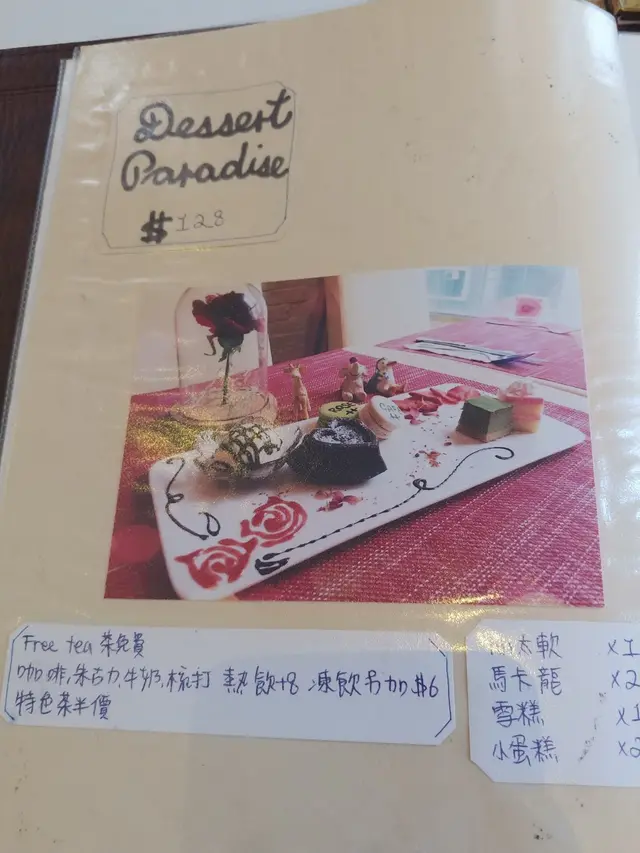 Dessert
Paradise
$128
Free tea 茶免費
咖啡,朱古力,牛奶,梳打 熱飲+8 凍飲另加$6
特色茶半價
太軟 x1
馬卡龍 x2
雪糕 x1
小蛋糕 x2